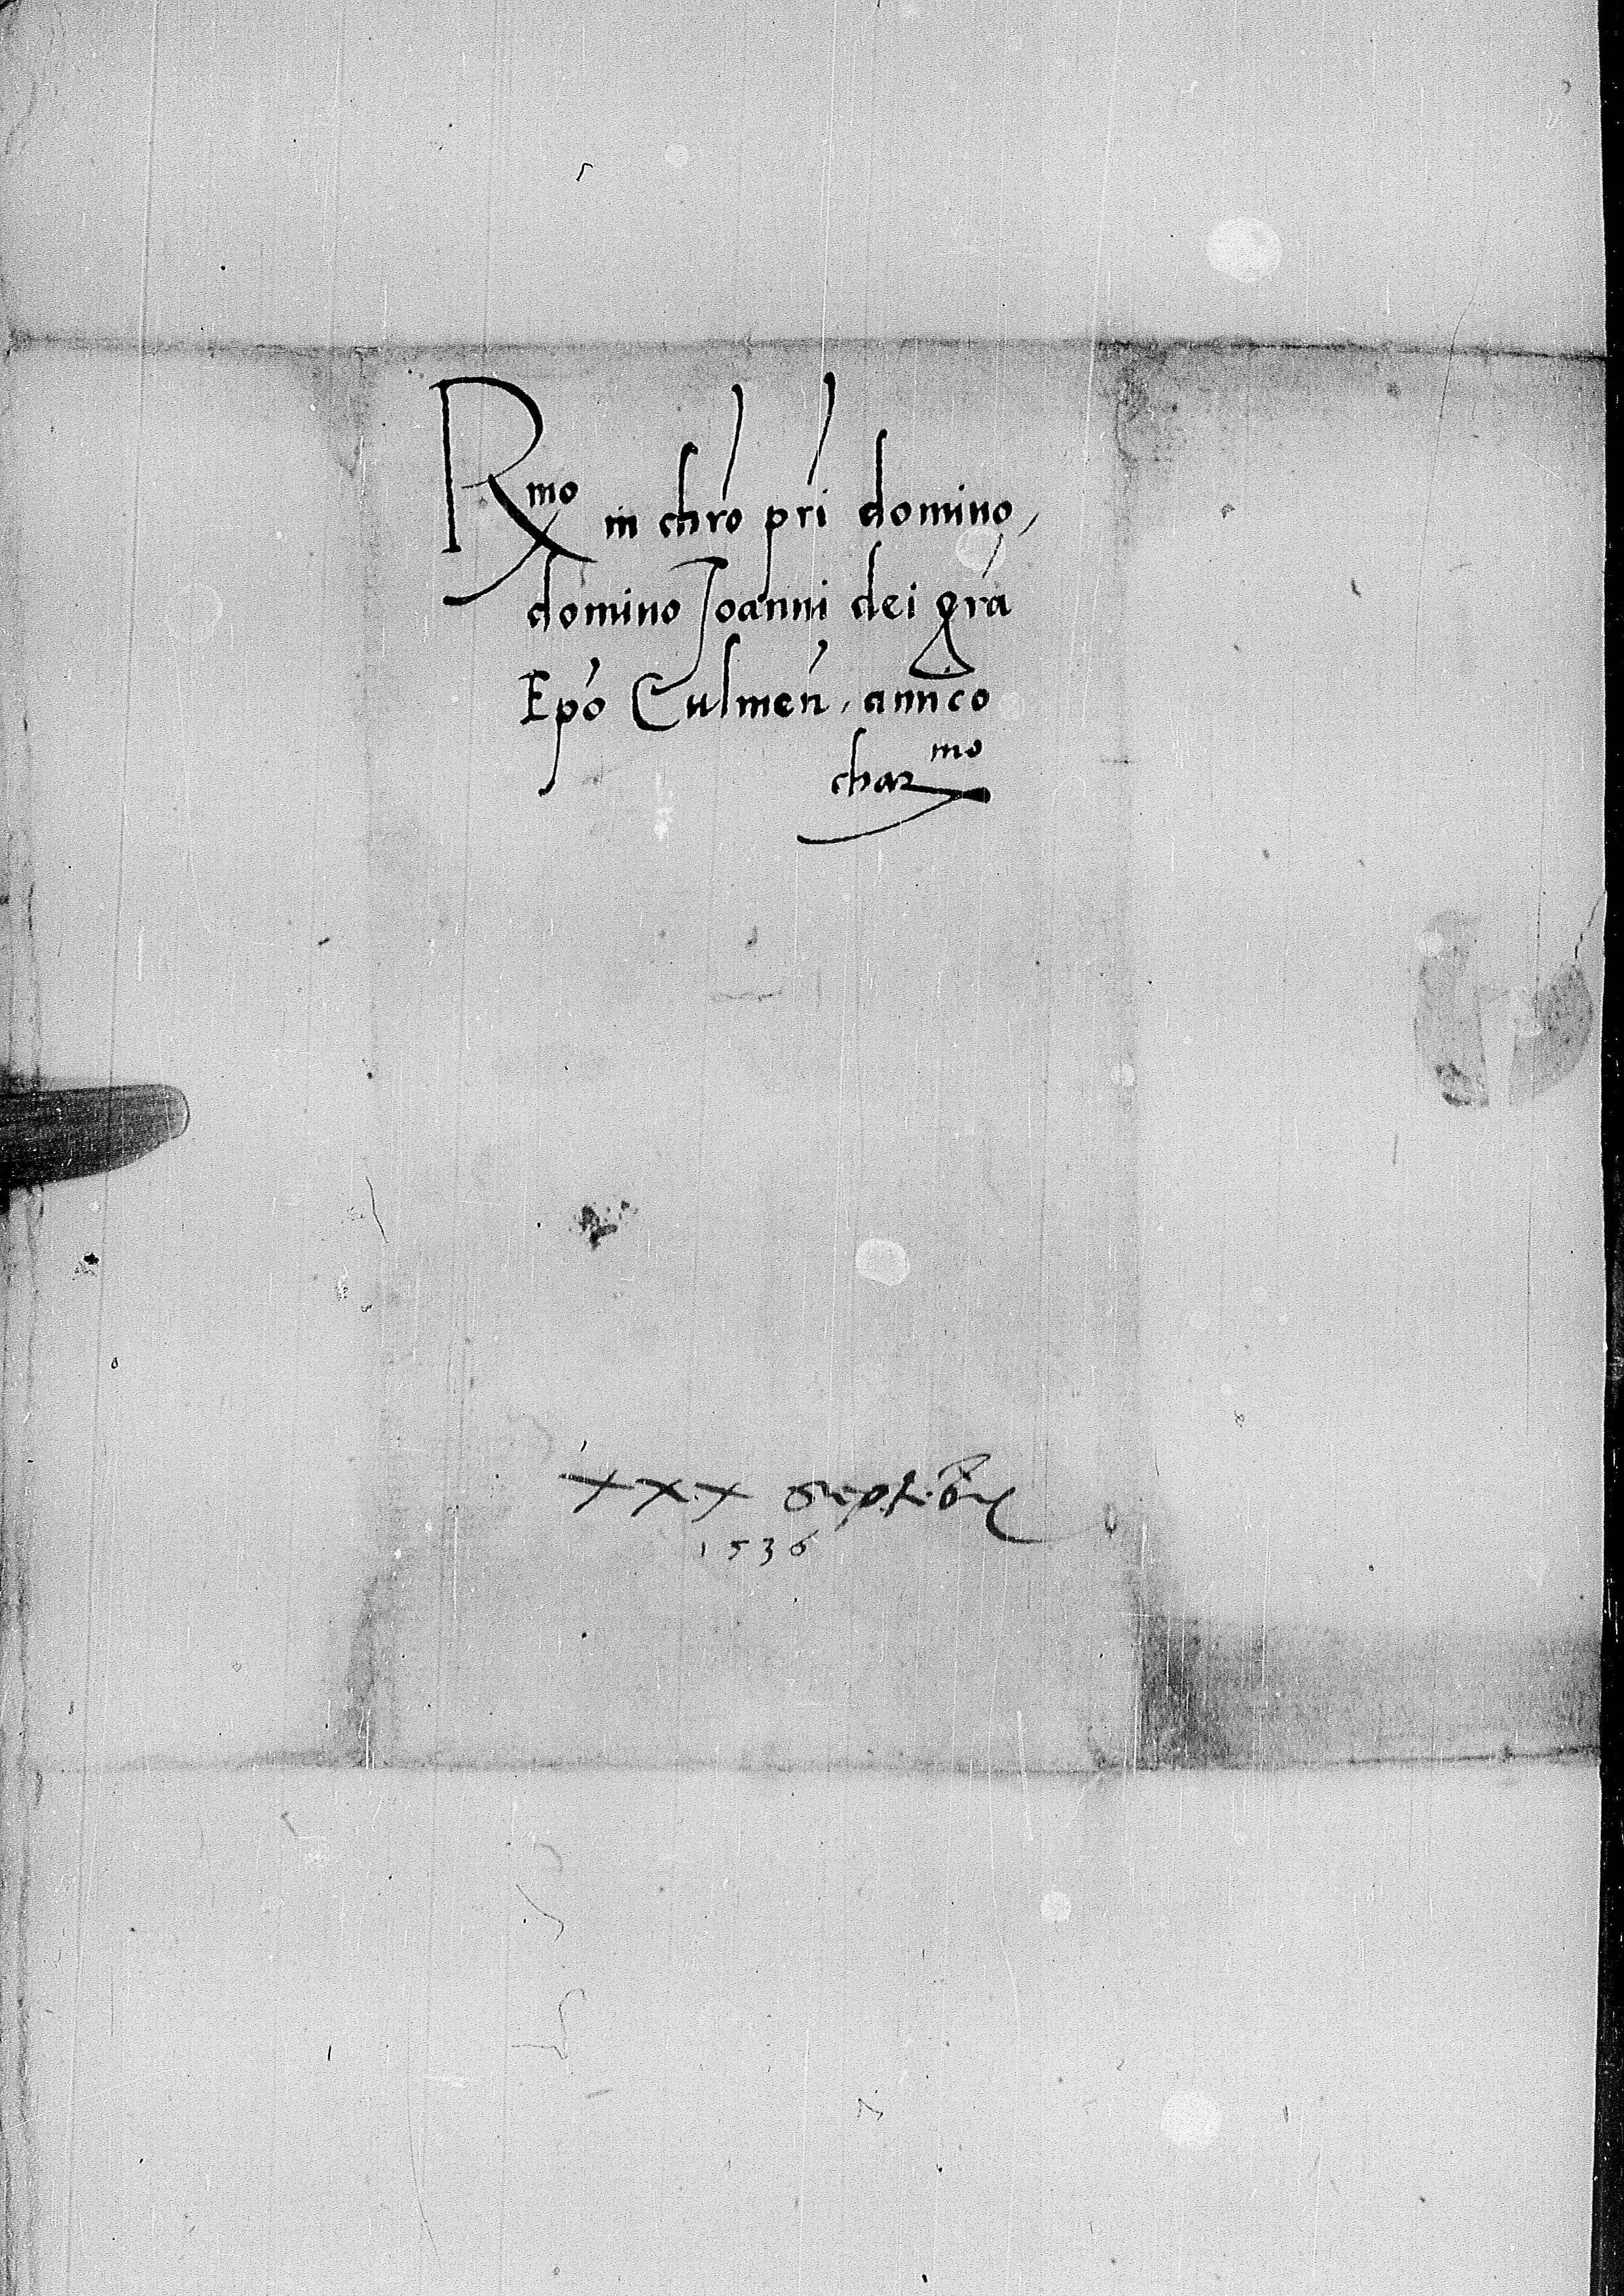 Rmo in chro pri domino,
domino Joanni dei gra
Epo Culmen, amico
charmo
xxx Septibr
1536